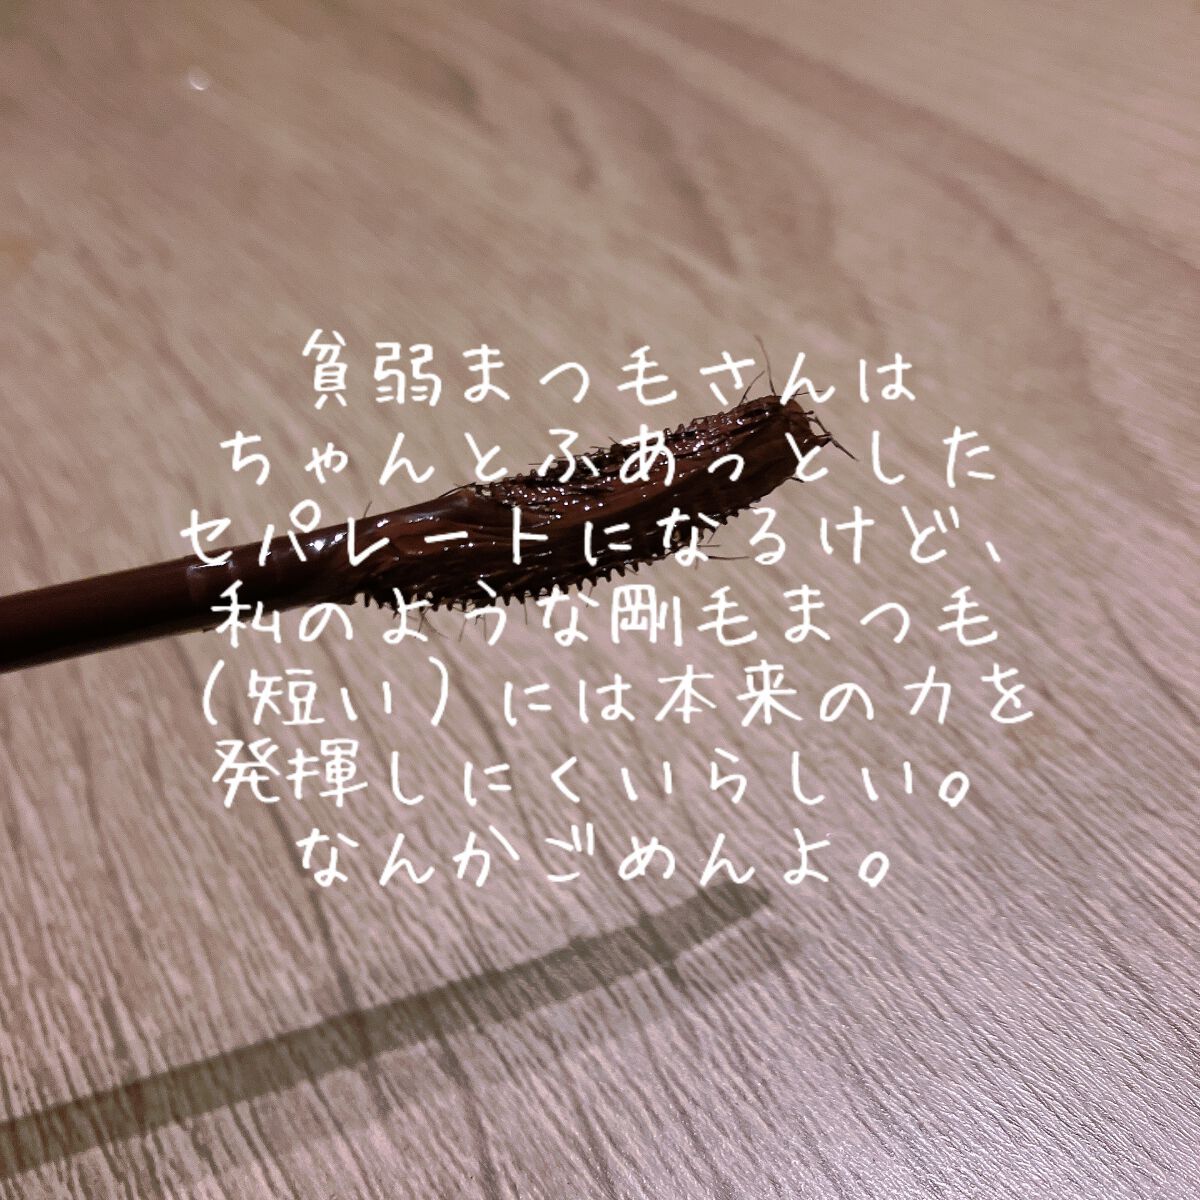 貧弱まつ毛さんは
ちゃんとふあっとした
セパレートになるけど、
私のような剛毛まつ毛
(短い)には本来の力を
発揮しにくいらしい。
なんかごめんよ。